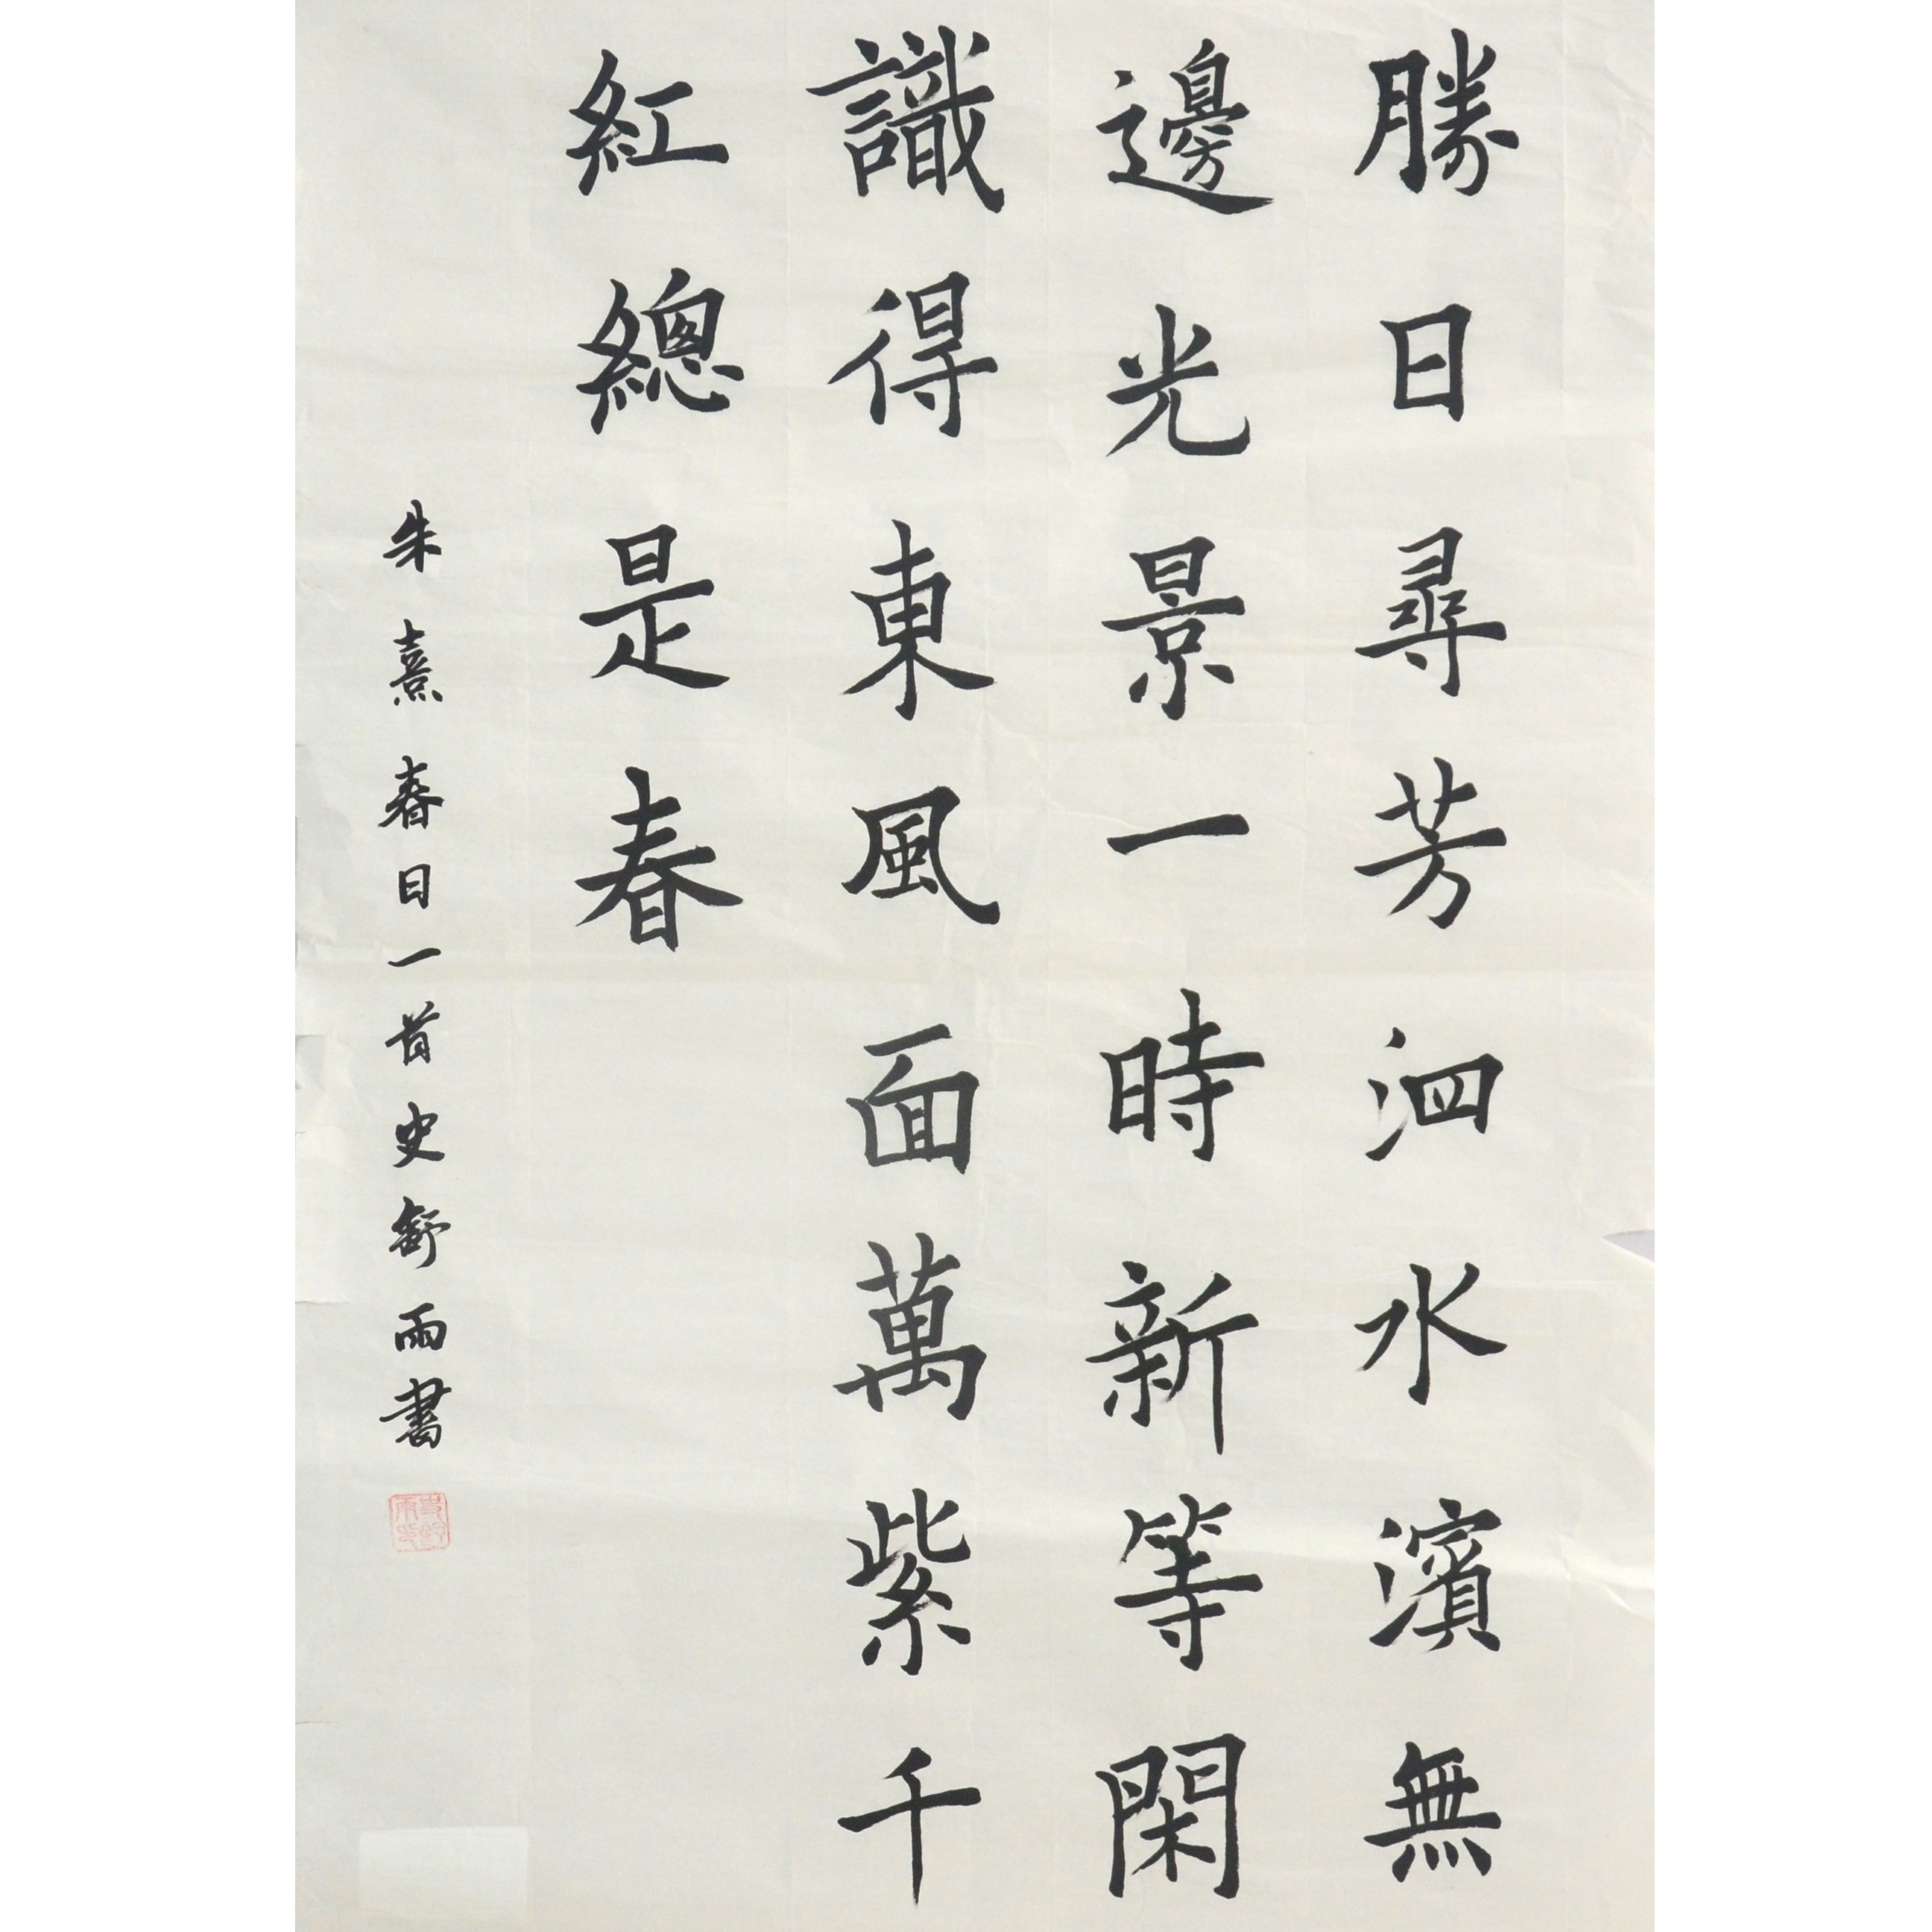 勝日尋芳泗水濱無
邊光景一時新等閑
識得東風面萬紫千
紅總是春
朱熹春日一首史舒雨書